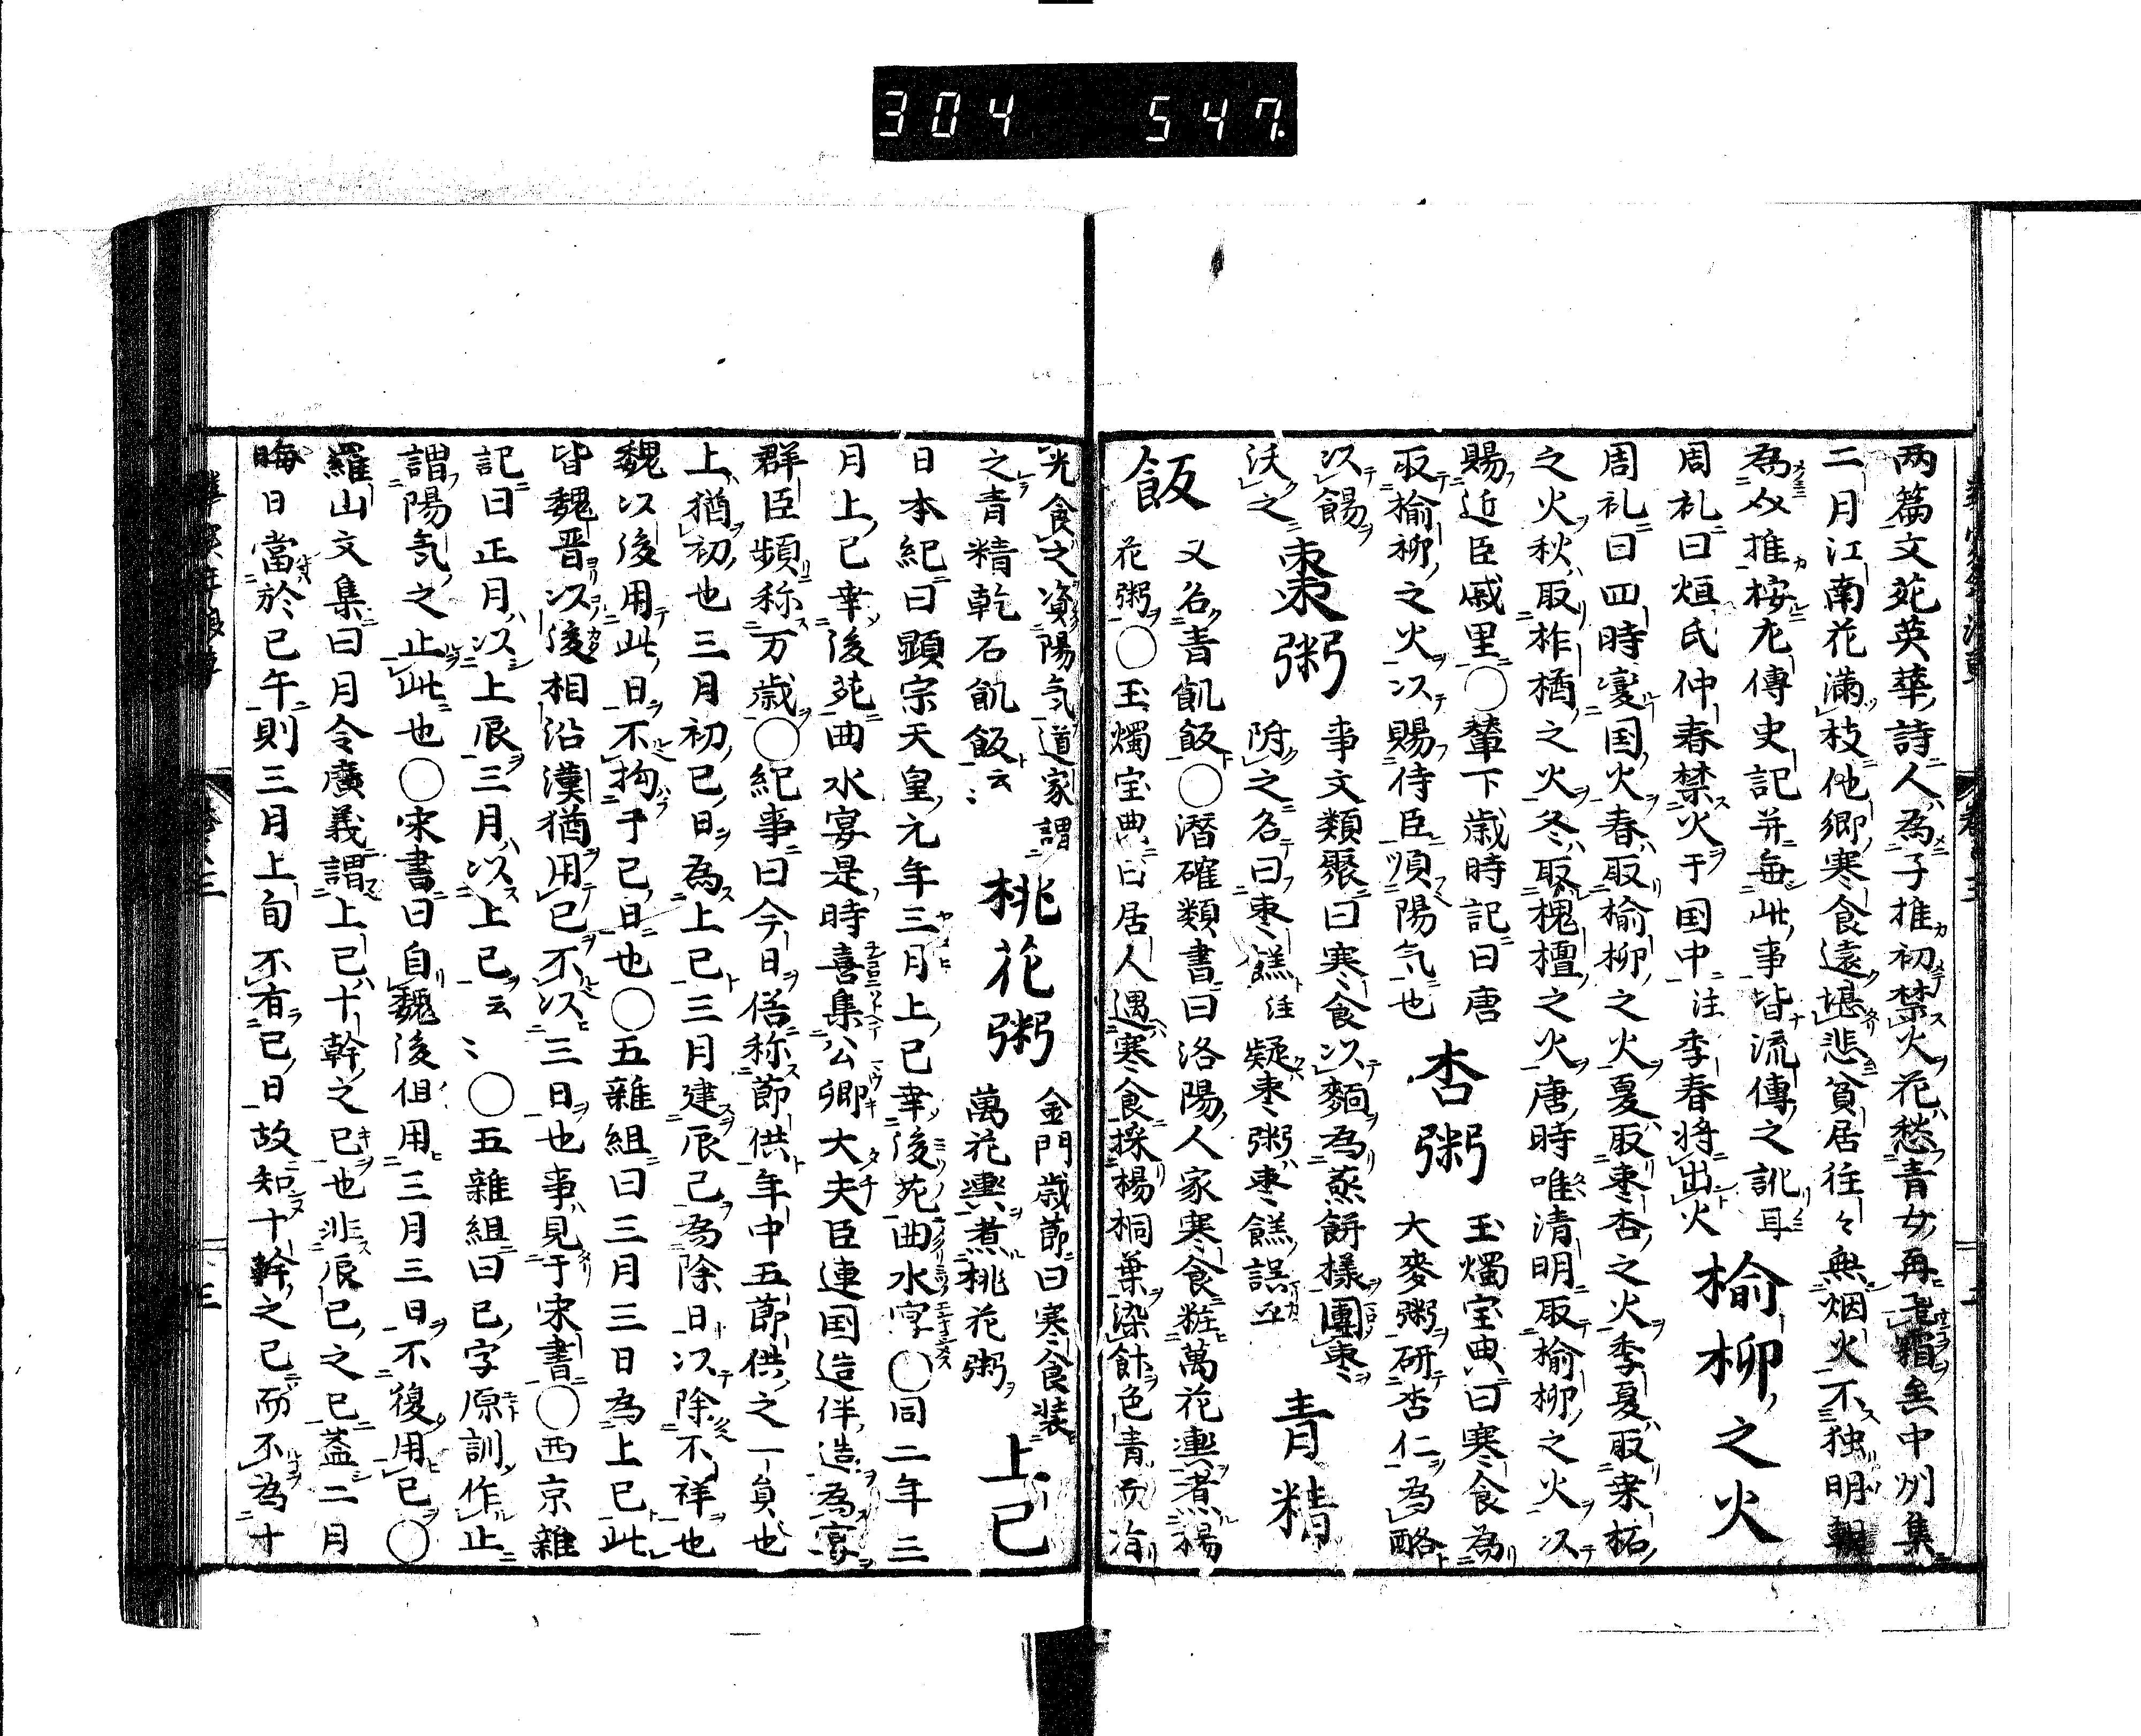 304 547.
两篇文苑英華詩人為子推初禁火花愁青女再飛霜矣中州集
二月江南花満枝他郷寒食遠堪悲貧居往々無烟火不独明朝
為子推桉左傳史記并毎此事皆流傳之訛耳
榆柳之火
周礼曰烜氏仲春禁火于国中注季春将出火
周礼曰四時変国火春取榆柳之火夏取棗杏之火季夏取桑柘
之火秋取柞楢之火冬取槐檀之火唐時唯清明取榆柳之火以
賜近臣戚里〇輦下歳時記曰唐
取榆柳之火以賜侍臣順陽気也
杏粥
玉燭宝典曰寒食為
大麥粥研杏仁為酪
以餳
沃之
棗粥
事文類聚曰寒食以麵為蒸餅様團棗
附之名曰棗糕注疑棗粥棗糕誤
青精
飯
又名青飢飯〇潜確類書曰洛陽人家寒食粧萬花輿煮楊
花粥〇玉燭宝典曰居人遇寒食採楊桐葉染飯色青而
光食之資陽気道家謂
之青精乾石飢飯云〻
桃花粥
金門歳節曰寒食装
萬花輿煮桃花粥
上巳
日本紀曰顕宗天皇元年三月上巳幸後苑曲水宴〇同二年三
月上巳幸後苑曲水宴是時喜集公卿大夫臣連国造伴造為宴
群臣頻称万歳〇紀事曰今日俗称節供年中五節供之一員也
上猶初也三月初巳日為上巳三月建辰巳為除日以除不祥也
魏以後用此日不拘于巳日也〇五雜組曰三月三日為上巳此
皆魏晋以後相沿漢猶用巳不以三日也事見于宋書〇西京雜
記曰正月以上辰三月以上巳云〻〇五雜組曰巳字原訓作止
謂陽氣之止此也〇宋書曰自魏後但用三月三日不復用巳〇
羅山文集曰月令廣義謂上巳十幹之己也非辰巳之巳蓋二月
晦日當於巳午則三月上旬不有巳日故知十幹之己而不為十